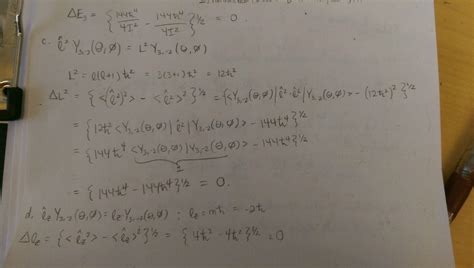 ΔE₃ = {144ħ⁴/4I² - 144ħ⁴/4I²}^½ = 0.
c. l̂² Y₃,₋₂(θ,φ) = L² Y₃,₋₂(θ,φ)
L² = l(l+1)ħ² = 3(3+1)ħ² = 12ħ²
ΔL² = {<(l̂²)²> - <l̂²>²}^½ = {<Y₃,₋₂(θ,φ)|l̂²·l̂²|Y₃,₋₂(θ,φ)> - (12ħ²)²}^½
= {12ħ²<Y₃,₋₂(θ,φ)|l̂²|Y₃,₋₂(θ,φ)> - 144ħ⁴}^½
= {144ħ⁴<Y₃,₋₂(θ,φ)|Y₃,₋₂(θ,φ)> - 144ħ⁴}^½
= {144ħ⁴ - 144ħ⁴}^½ = 0.
d. l̂z Y₃,₋₂(θ,φ) = lz Y₃,₋₂(θ,φ) ; lz = mħ = -2ħ
Δlz = {<l̂z²> - <l̂z>²}^½ = {4ħ² - 4ħ²}^½ = 0